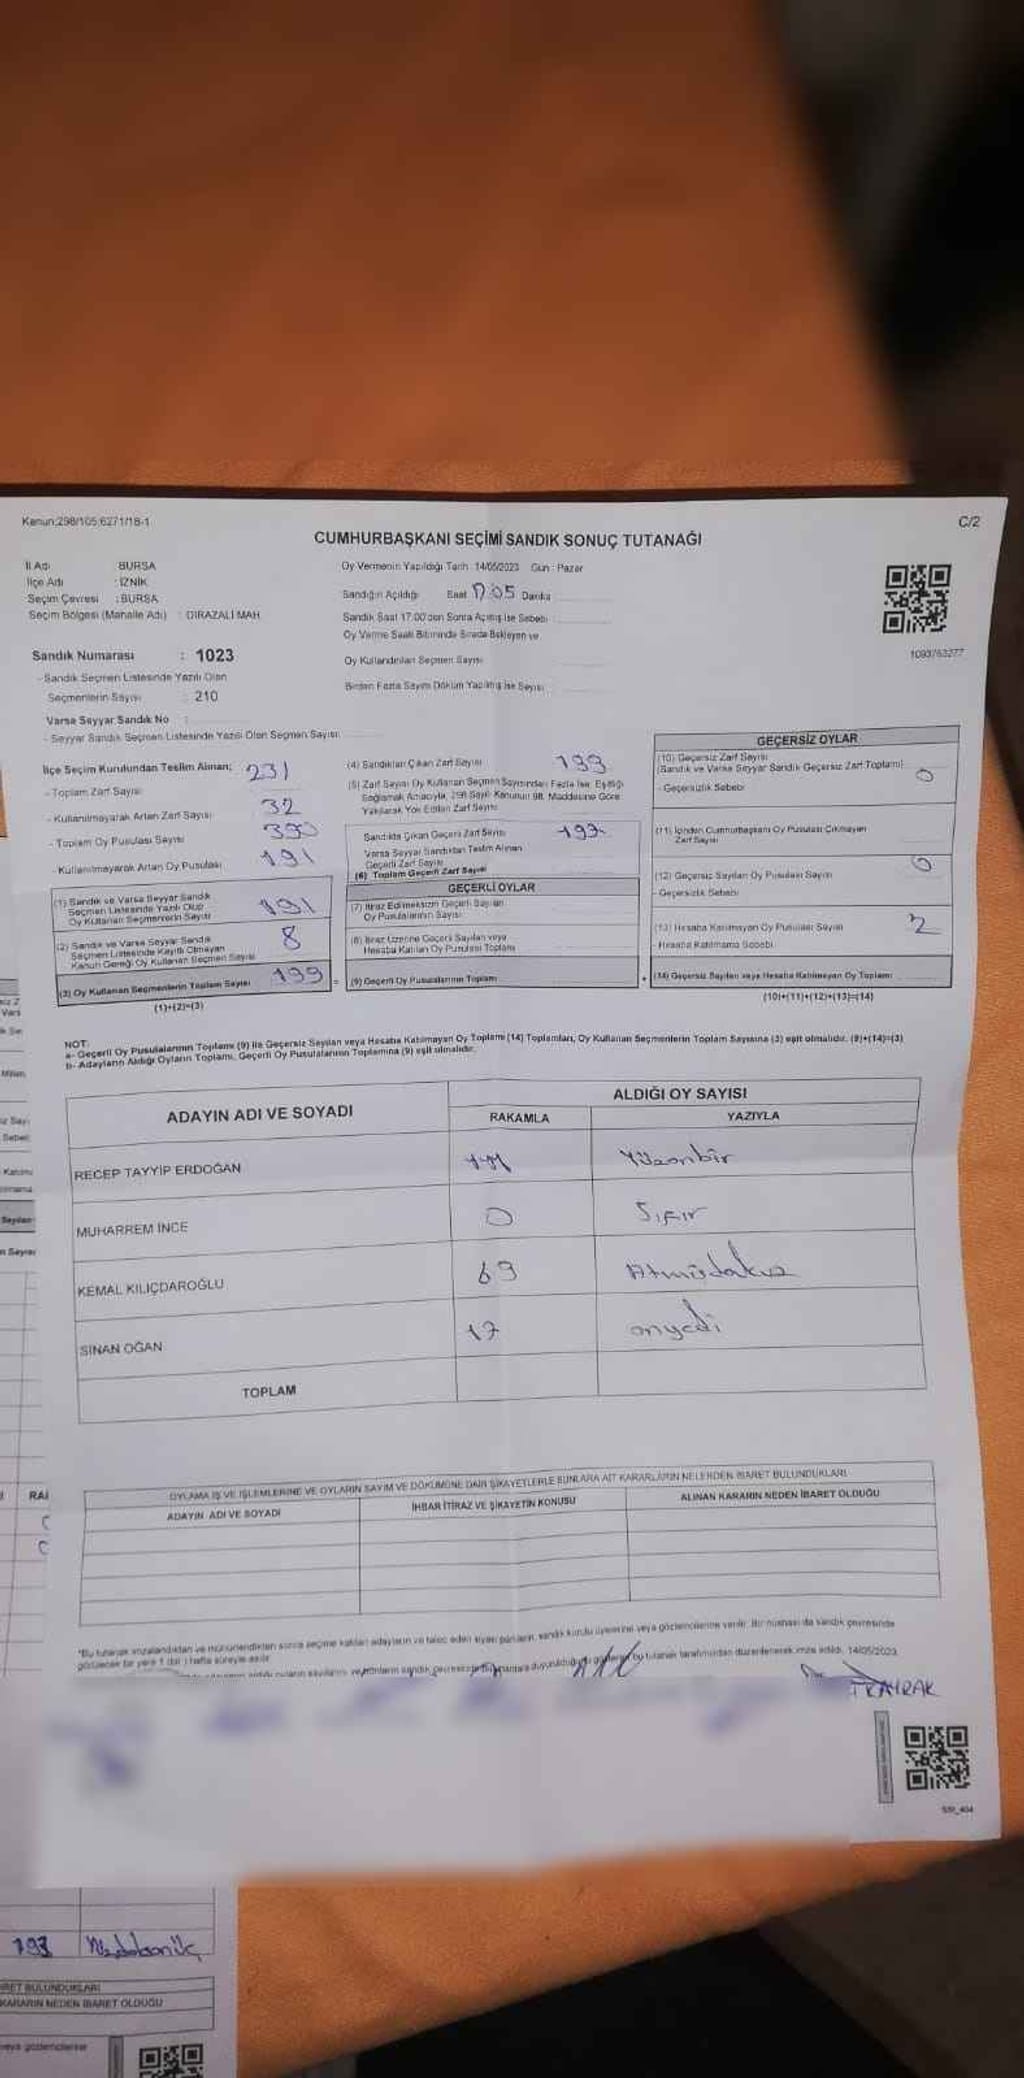 Kanun;298/105;6271/18-1
C/2
CUMHURBAŞKANI SEÇİMİ SANDIK SONUÇ TUTANAĞI
İl Adı : BURSA
İlçe Adı : İZNİK
Seçim Çevresi : BURSA
Seçim Bölgesi (Mahalle Adı) : DIRAZALİ MAH.
Oy Vermenin Yapıldığı Tarih : 14/05/2023 Gün : Pazar
Sandığın Açıldığı Saat 17:05 Dakika
Sandık Saat 17.00'den Sonra Açılmış İse Sebebi :
Oy Verme Saati Bitiminde Sırada Bekleyen ve
Oy Kullandırılan Seçmen Sayısı
Birden Fazla Sayım Döküm Yapılmış İse Sayısı :
1093763277
Sandık Numarası : 1023
- Sandık Seçmen Listesinde Yazılı Olan
Seçmenlerin Sayısı : 210
Varsa Seyyar Sandık No :
- Seyyar Sandık Seçmen Listesinde Yazılı Olan Seçmen Sayısı:
İlçe Seçim Kurulundan Teslim Alınan; 231
- Toplam Zarf Sayısı
- Kullanılmayarak Artan Zarf Sayısı 32
- Toplam Oy Pusulası Sayısı 390
- Kullanılmayarak Artan Oy Pusulası 191
(1) Sandık ve Varsa Seyyar Sandık
Seçmen Listesinde Yazılı Olup
Oy Kullanan Seçmenlerin Sayısı 191
(2) Sandık ve Varsa Seyyar Sandık
Seçmen Listesinde Kayıtlı Olmayan
Kanun Gereği Oy Kullanan Seçmen Sayısı 8
(3) Oy Kullanan Seçmenlerin Toplam Sayısı 199
(1)+(2)=(3)
(4) Sandıktan Çıkan Zarf Sayısı 199
(5) Zarf Sayısı Oy Kullanan Seçmen Sayısından Fazla İse, Eşitliği
Sağlamak Amacıyla, 298 Sayılı Kanunun 98. Maddesine Göre
Yakılarak Yok Edilen Zarf Sayısı
Sandıkta Çıkan Geçerli Zarf Sayısı
Varsa Seyyar Sandıktan Teslim Alınan
Geçerli Zarf Sayısı
(6) Toplam Geçerli Zarf Sayısı
GEÇERLİ OYLAR
(7) İtiraz Edilmeksizin Geçerli Sayılan
Oy Pusulalarının Sayısı
(8) İtiraz Üzerine Geçerli Sayılan veya
Hesaba Katılan Oy Pusulası Toplamı
(9) Geçerli Oy Pusulalarının Toplamı
GEÇERSİZ OYLAR
(10) Geçersiz Zarf Sayısı
(Sandık ve Varsa Seyyar Sandık Geçersiz Zarf Toplamı) 0
- Geçersizlik Sebebi
(11) İçinden Cumhurbaşkanı Oy Pusulası Çıkmayan
Zarf Sayısı
(12) Geçersiz Sayılan Oy Pusulası Sayısı 0
- Geçersizlik Sebebi
(13) Hesaba Katılmayan Oy Pusulası Sayısı 2
Hesaba Katılmama Sebebi
(14) Geçersiz Sayılan veya Hesaba Katılmayan Oy Toplamı
(10)+(11)+(12)+(13)=(14)
NOT:
a- Geçerli Oy Pusulalarının Toplamı (9) ile Geçersiz Sayılan veya Hesaba Katılmayan Oy Toplamı (14) Toplamları, Oy Kullanan Seçmenlerin Toplam Sayısına (3) eşit olmalıdır. (9)+(14)=(3)
b- Adayların Aldığı Oyların Toplamı, Geçerli Oy Pusulalarının Toplamına (9) eşit olmalıdır.
ADAYIN ADI VE SOYADI
ALDIĞI OY SAYISI
RAKAMLA YAZIYLA
RECEP TAYYİP ERDOĞAN 111 Yüzonbir
MUHARREM İNCE 0 Sıfır
KEMAL KILIÇDAROĞLU 69 Atmışdokuz
SİNAN OĞAN 17 onyedi
TOPLAM
OYLAMA İŞ VE İŞLEMLERİNE VE OYLARIN SAYIM VE DÖKÜMÜNE DAİR ŞİKAYETLERLE BUNLARA AİT KARARLARIN NELERDEN İBARET BULUNDUKLARI
ADAYIN ADI VE SOYADI
İHBAR İTİRAZ VE ŞİKAYETİN KONUSU
ALINAN KARARIN NEDEN İBARET OLDUĞU
SSI_404
193
İBARET BULUNDUKLARI
KARARIN NEDEN İBARET OLDUĞU
veya gözlemcilerine